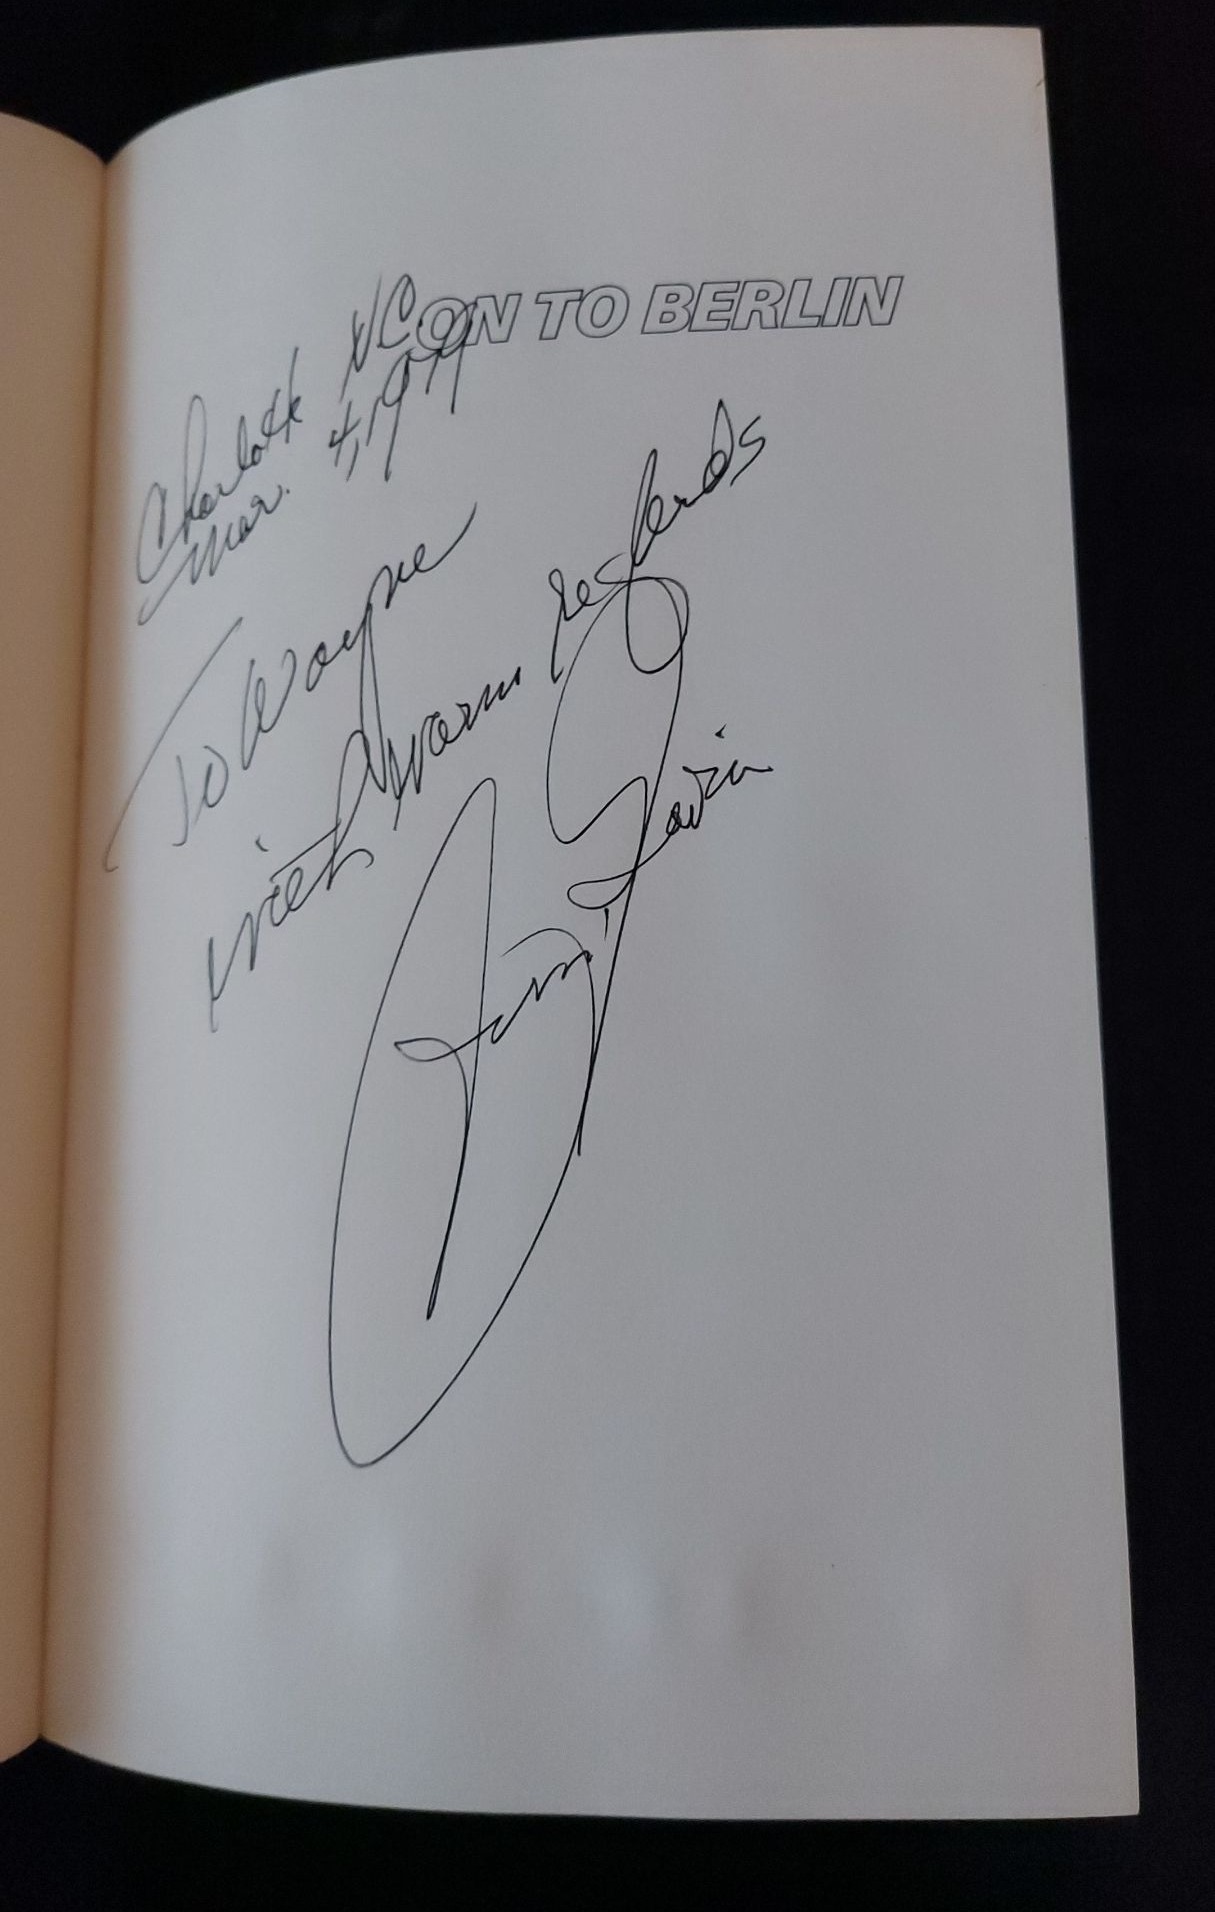 ON TO BERLIN
Charlotte NC
Mar. 4, 1979
To Wayne
with warm regards
Jim Gavin